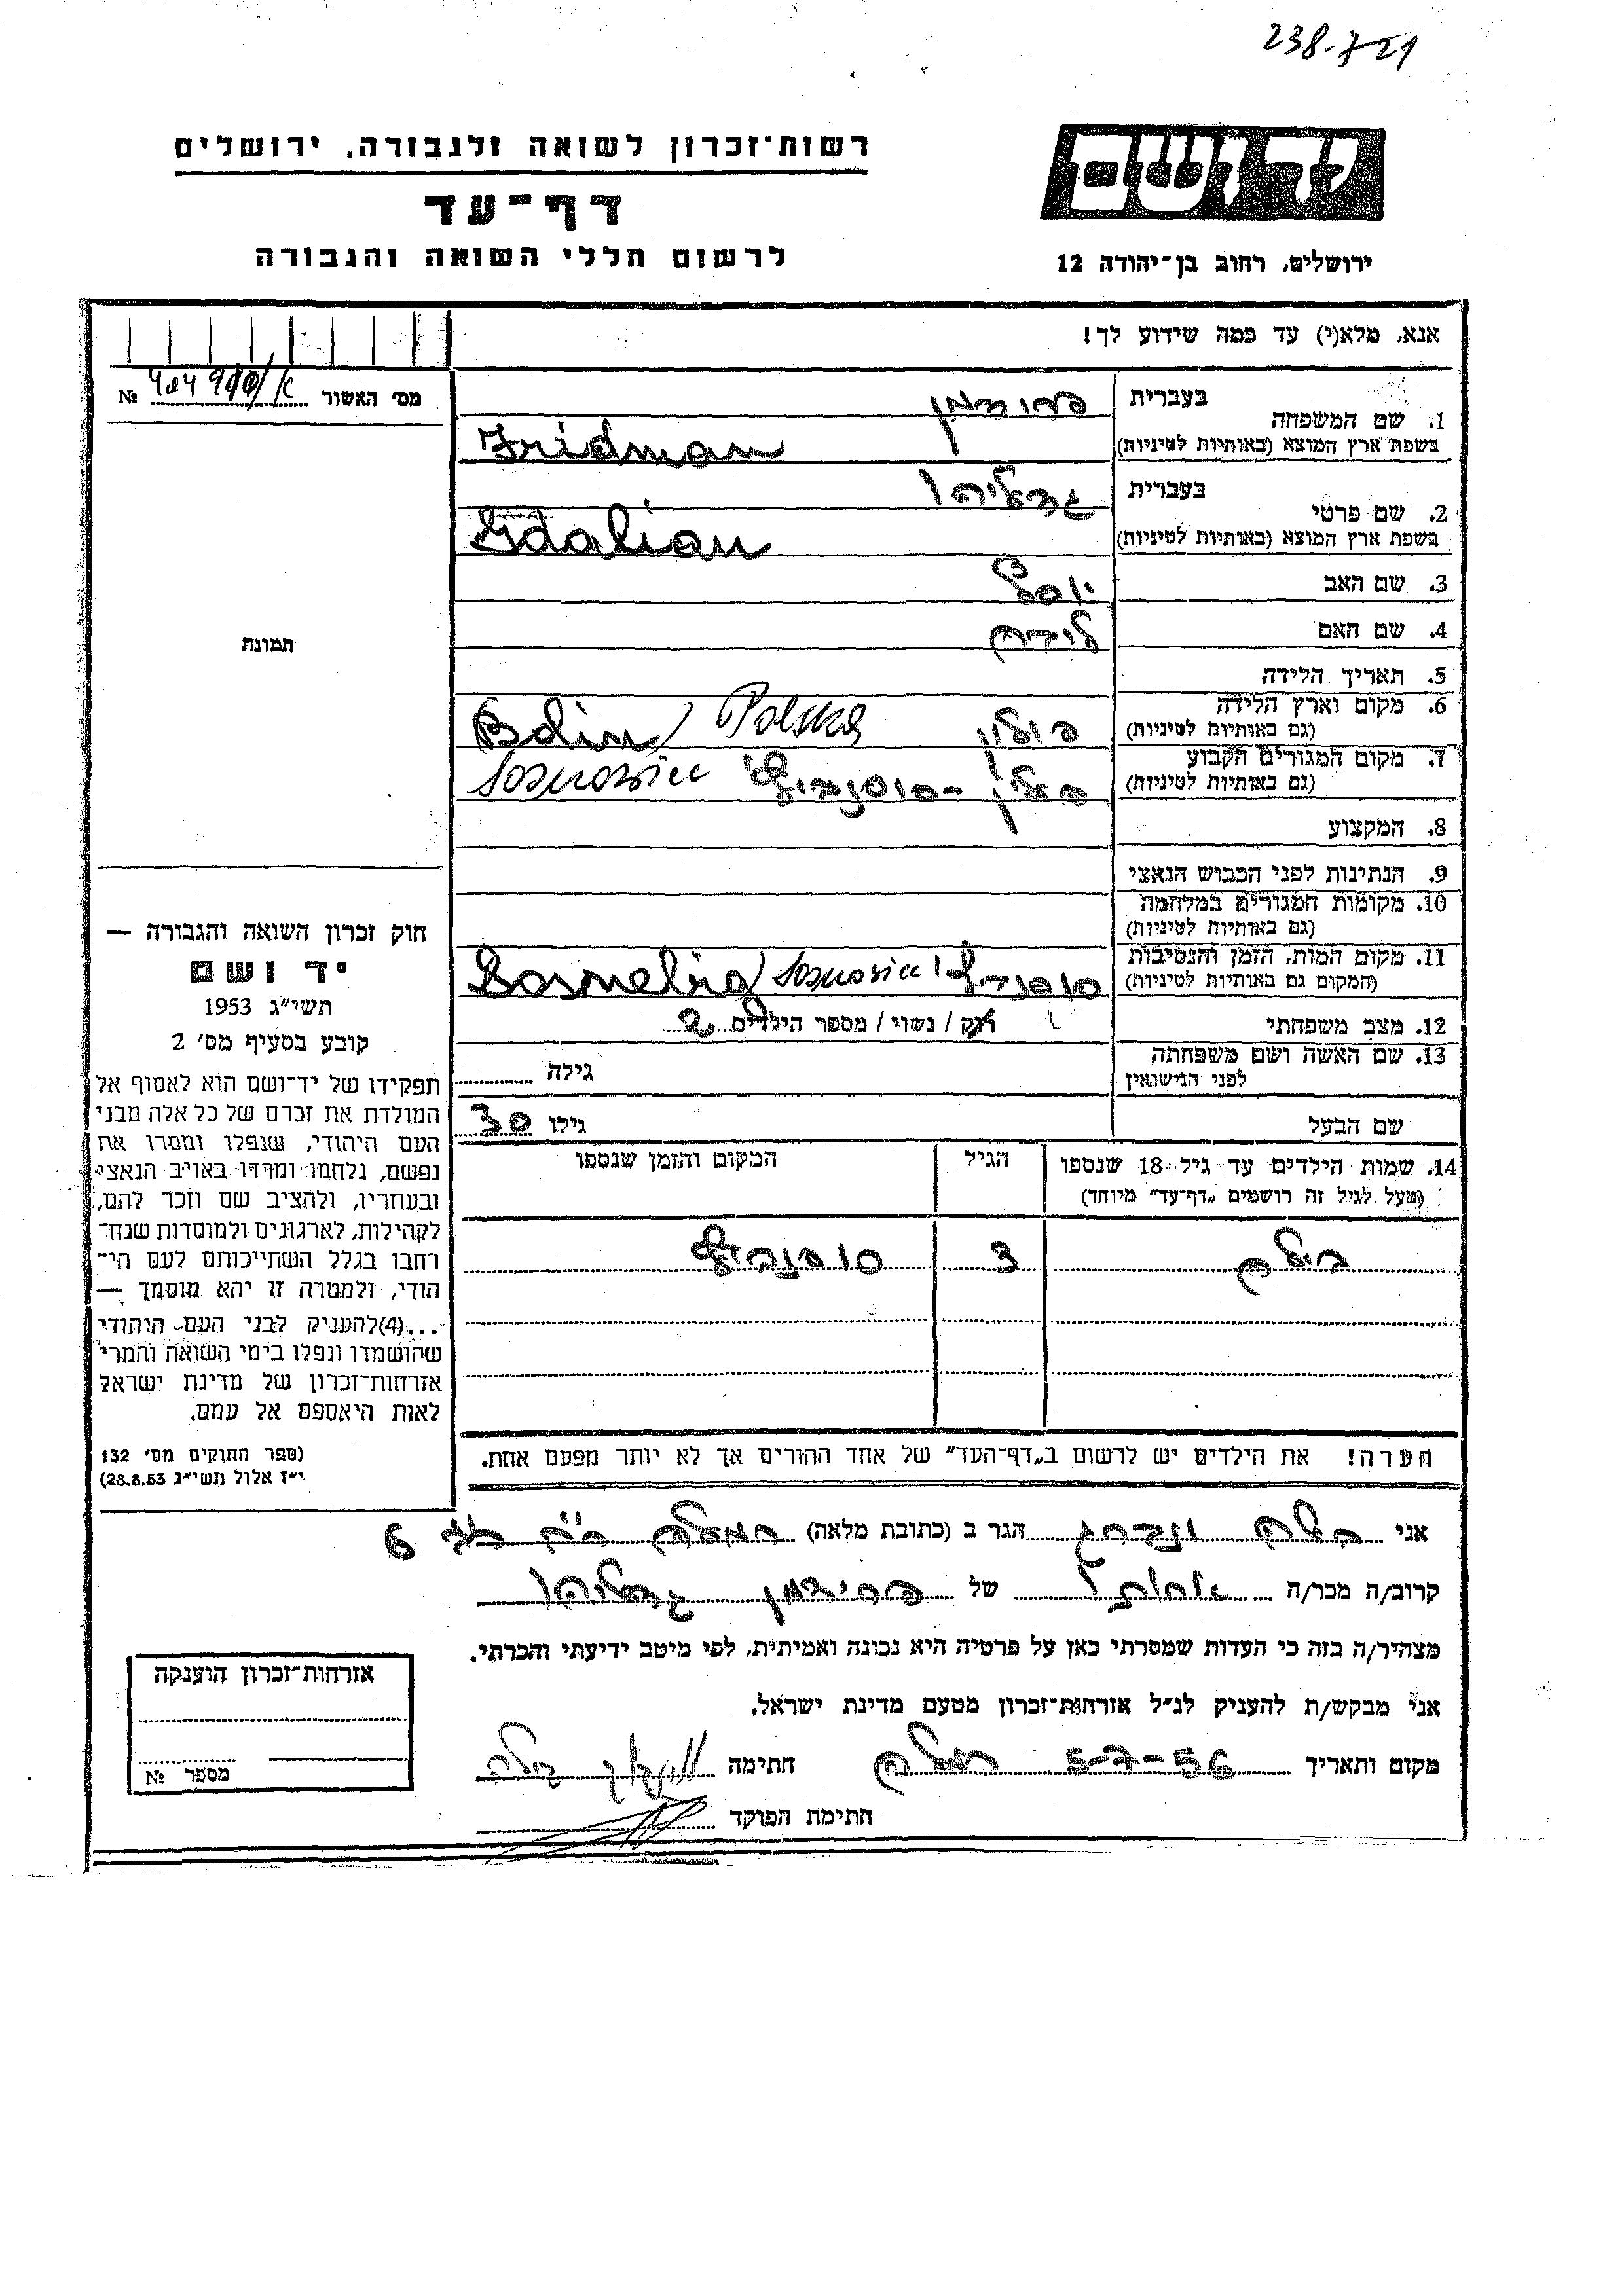 238-721
רשות־זכרון לשואה ולגבורה, ירושלים
דף־עד
לרשום חללי השואה והגבורה
יד ושם
ירושלים, רחוב בן־יהודה 12
אנא, מלא(י) עד כמה שידוע לך!
מס׳ האשור № 
1. שם המשפחה
בעברית פרידמן
בשפת ארץ המוצא (באותיות לטיניות) Fridman
2. שם פרטי
בעברית גדליהו
בשפת ארץ המוצא (באותיות לטיניות) Gdaliau
3. שם האב יוסף
4. שם האם
5. תאריך הלידה
6. מקום וארץ הלידה פולין Polska
(גם באותיות לטיניות)
7. מקום המגורים הקבוע סוסנוביץ Sosnowiec
(גם באותיות לטיניות)
8. המקצוע
9. הנתינות לפני הכבוש הנאצי
10. מקומות המגורים במלחמה
(גם באותיות לטיניות)
11. מקום המות, הזמן והנסיבות Sosnowiec
(המקום גם באותיות לטיניות)
12. מצב משפחתי רוק / נשוי / מספר הילדים 2
13. שם האשה ושם משפחתה
לפני הנישואין גילה
שם הבעל גילו 30
14. שמות הילדים עד גיל 18 שנספו הגיל המקום והזמן שנספו
(מעל לגיל זה רושמים „דף־עד״ מיוחד)
3 סוסנוביץ
הערה! את הילדים יש לרשום ב„דף־העד״ של אחד ההורים אך לא יותר מפעם אחת.
תמונה
חוק זכרון השואה והגבורה —
יד ושם
תשי״ג 1953
קובע בסעיף מס׳ 2
תפקידו של יד־ושם הוא לאסוף אל
המולדת את זכרם של כל אלה מבני
העם היהודי, שנפלו ומסרו את
נפשם, נלחמו ומרדו באויב הנאצי
ובעוזריו, ולהציב שם וזכר להם,
לקהילות, לארגונים ולמוסדות שנח־
רחבו בגלל השתייכותם לעם הי־
הודי, ולמטרה זו יהא מוסמך —
...(4)להעניק לבני העם היהודי
שהושמדו ונפלו בימי השואה והמרי
אזרחות־זכרון של מדינת ישראל
לאות היאספם אל עמם.
(ספר החוקים מס׳ 132
י״ז אלול תשי״ג 28.8.53)
אני הגר ב (כתובת מלאה) רמלה 6
קרוב/ה מכר/ה אחותו של פרידמן גדליהו
מצהיר/ה בזה כי העדות שמסרתי כאן על פרטיה היא נכונה ואמיתית, לפי מיטב ידיעתי והכרתי.
אני מבקש/ת להעניק לנ״ל אזרחות־זכרון מטעם מדינת ישראל.
מקום ותאריך רמלה 5-7-56 חתימה
חתימת הפוקד
אזרחות־זכרון הוענקה
מספר №